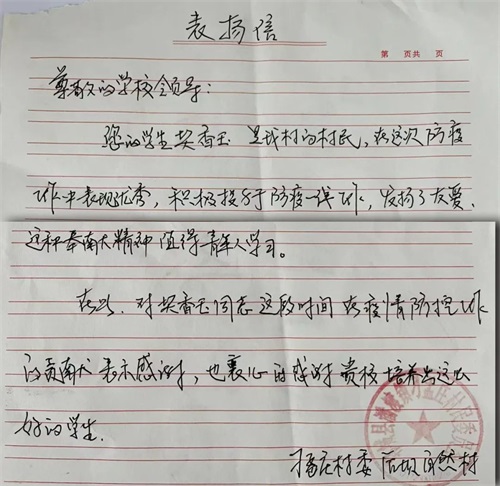 表扬信
第 页共 页
尊敬的学校领导:
您的学生樊香玉是我村的村民,在这次防疫
工作中表现优秀,积极投身于防疫一线工作,发扬了友爱、
这种奉献大精神值得青年人学习。
在此,对樊香玉同志这段时间在疫情防控工作
的贡献大表示感谢,也衷心的感谢贵校培养出这么
好的学生.
村委 自然村